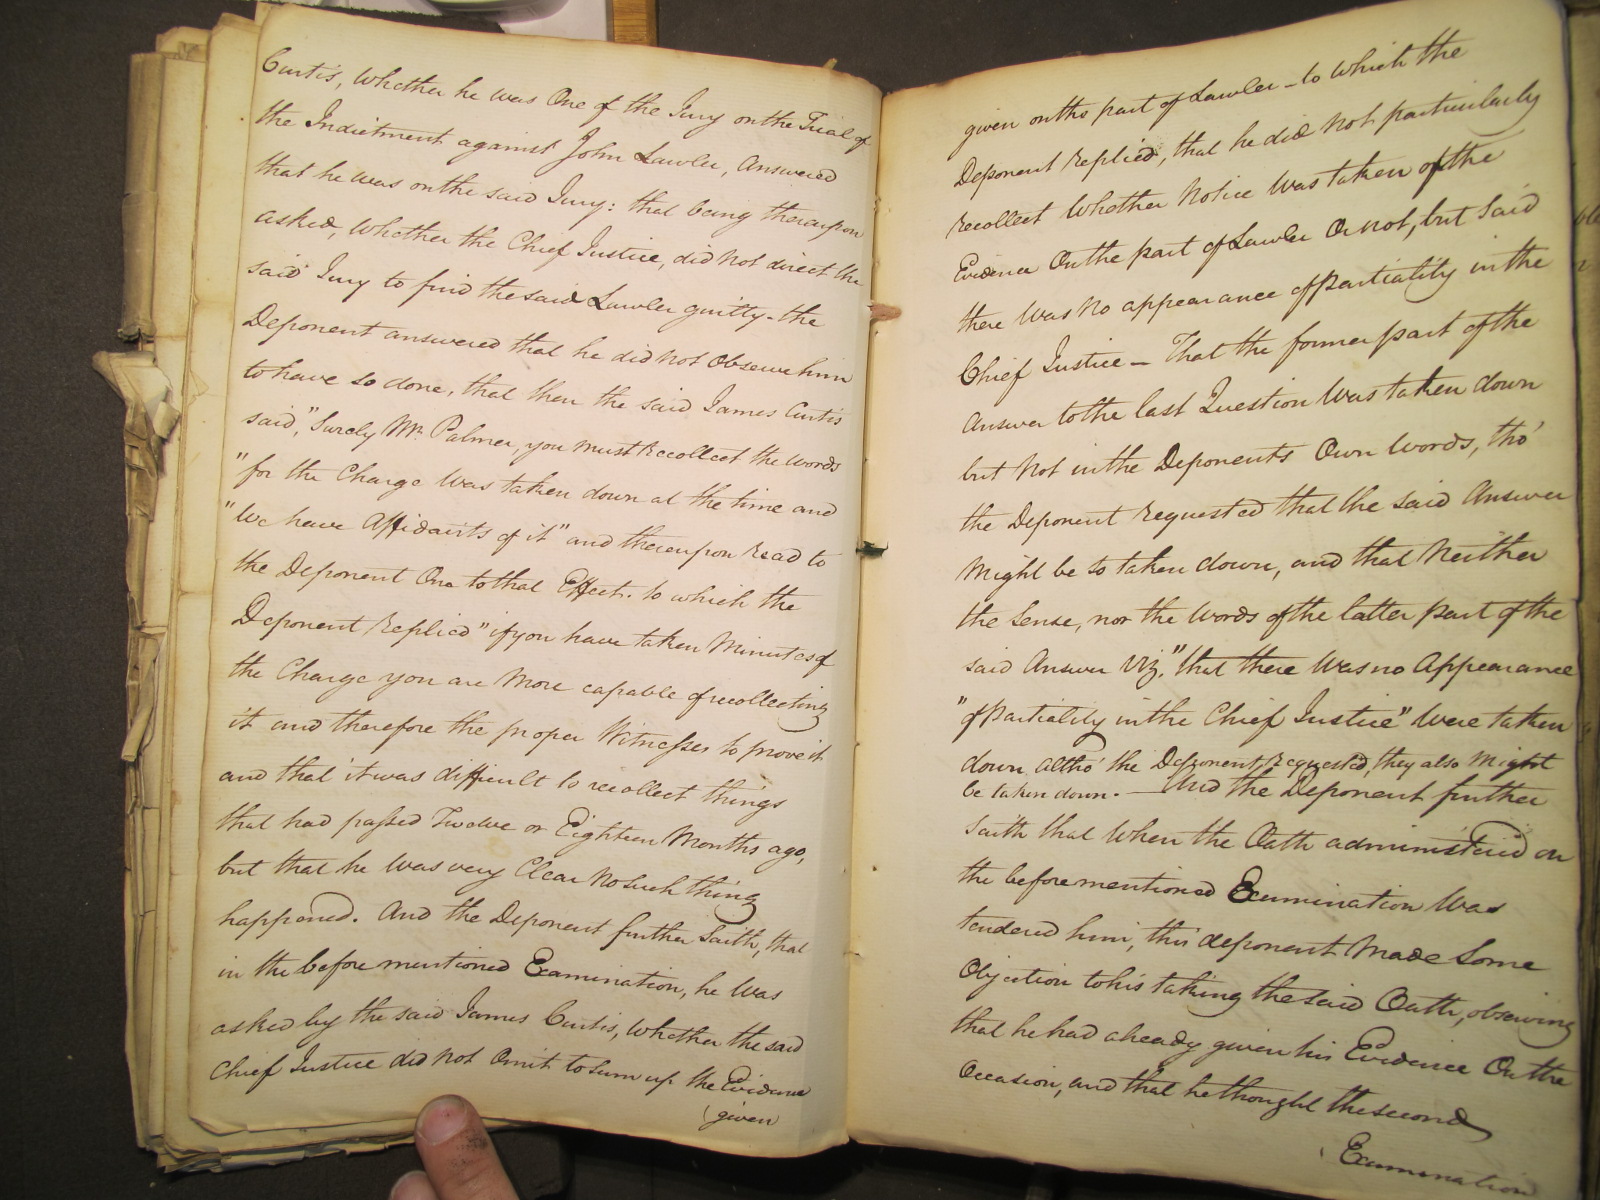 Curtis, Whether he was One of the Jury on the Trial of
the Indictment against John Lawler, Answered
that he was on the said Jury: that being thereupon
asked, Whether the Chief Justice, did not direct the
said Jury to find the said Lawler guilty - the
Deponent answered that he did not Observe him
to have so done, that then the said James Curtis
said, "Surely Mr. Palmer, you must Recollect the Words
"for the Charge Was taken down at the time and
"We have Affidavits of it" and thereupon Read to
the Deponent One to that Effect. to which the
Deponent Replied "if you have taken Minutes of
the Charge you are More capable of recollecting
it and therefore the proper Witnesses to prove it
and that it was difficult to recollect things
that had passed Twelve or Eighteen Months ago,
but that he Was very Clear No such thing
happened. And the Deponent further Saith, that
in the before mentioned Examination, he Was
asked by the said James Curtis, Whether the said
Chief Justice did not Omit to Sum up the Evidence
given
given on the part of Lawler - to Which the
Deponent Replied, that he did Not particularly
Recollect Whether Notice Was taken of the
Evidence On the part of Lawler Or not, but Said
there Was No appearance of Partiality in the
Chief Justice - That the former part of the
Answer to the last Question Was taken down
but Not in the Deponents Own Words, tho'
the Deponent Requested that the said Answer
Might be so taken down, and that Neither
the Sense, nor the Words of the latter part of the
said Answer Viz. "that there Was no Appearance
"of Partiality in the Chief Justice" Were taken
down altho' the Deponent Requested, they also Might
be taken down. - And the Deponent further
Saith that When the Oath administered on
the beforementioned Examination Was
tendered him, this deponent Made Some
Objection to his taking the said Oath, observing
that he had already given his Evidence On the
Occasion, and that he thought the second
Examination